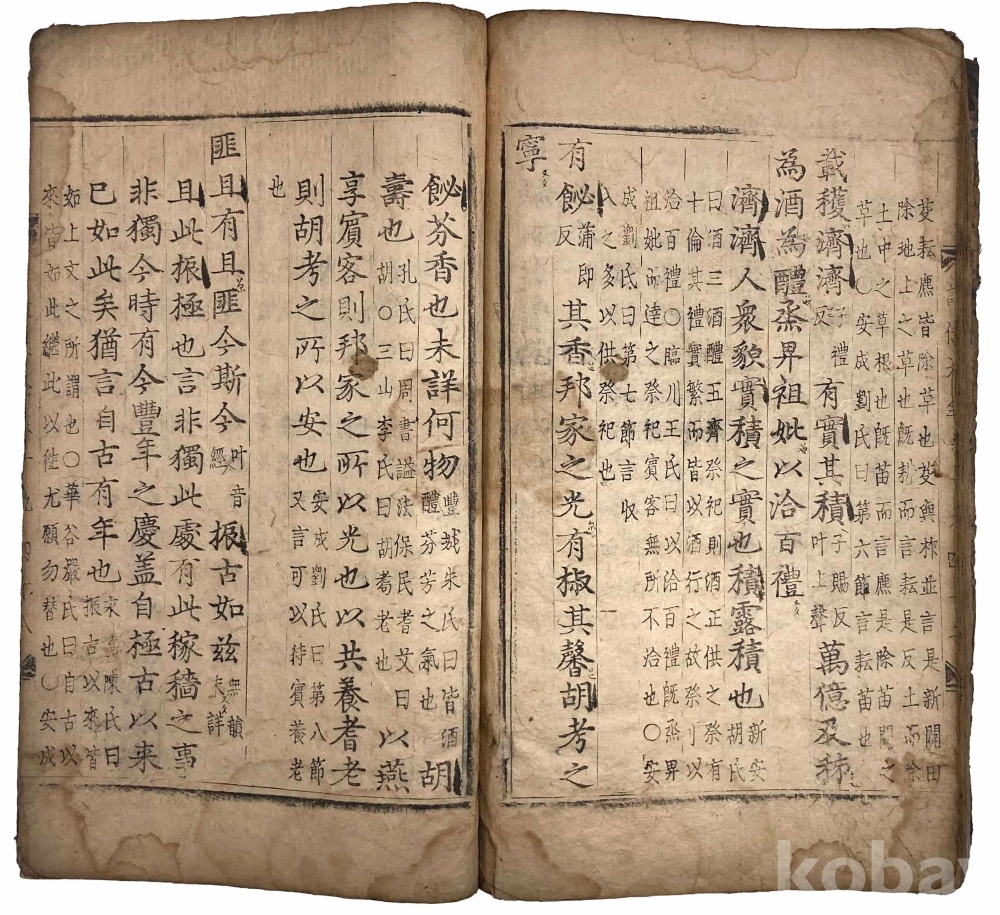 芟耘麃皆除草也芟與柞並言是新闢田
除地上之草也旣而言耘是反土而除
土中之草根也旣苗而言麃是除苗間之
草也〇安成劉氏曰第六節言耘苗也
載穫濟濟子禮反有實其積子賜反叶上聲萬億及秭
為酒為醴烝畀祖妣以洽百禮
濟濟人衆貌實積之實也積露積也新安胡氏
曰酒三酒醴五齊祭祀則酒正供之祭有
十倫其禮實繁而皆以酒行之故祭則以
洽百禮〇臨川王氏曰以洽百禮旣烝畀
祖妣而達之祭祀賓客無所不洽也〇安
成劉氏曰第七節言收
入之多以供祭祀也
有飶蒲即反其香邦家之光有椒其馨胡考之
寧
飶芬香也未詳何物豐城朱氏曰皆酒醴芬芳之氣也胡
壽也孔氏曰周書謚法保民耆艾曰胡〇三山李氏曰胡耉老也以燕
享賓客則邦家之所以光也以共養耆老
則胡考之所以安也安成劉氏曰第八節又言可以待賓養老
也
匪且有且匪今斯今叶音經振古如兹無韻未詳
且此振極也言非獨此處有此稼穡之事
非獨今時有今豐年之慶盖自極古以来
巳如此矣猶言自古有年也永嘉陳氏曰振古以來皆
如上文之所謂也〇華谷嚴氏曰自古以
來皆如此繼此以徃尤願勿替也〇安成